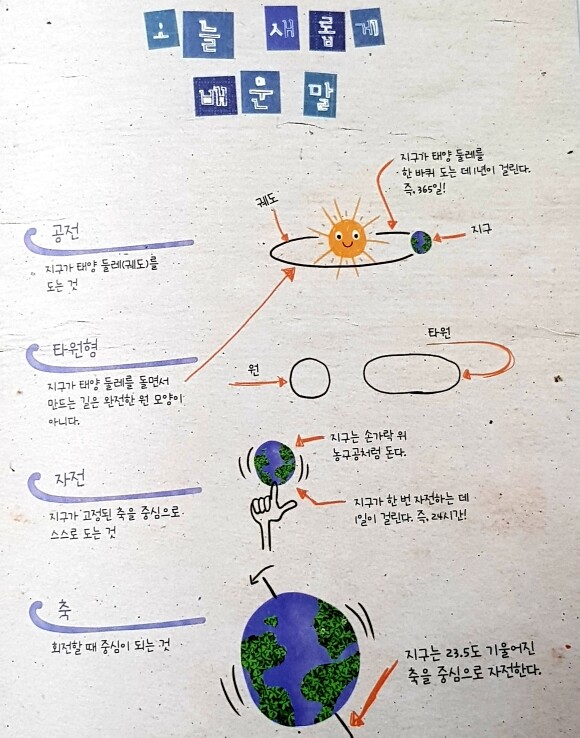 오늘 새롭게
배운 말
지구가 태양 둘레를
한 바퀴 도는 데 1년이 걸린다.
즉, 365일!
궤도
지구
공전
지구가 태양 둘레(궤도)를
도는 것
타원형
지구가 태양 둘레를 돌면서
만드는 길은 완전한 원 모양이
아니다.
원
타원
지구는 손가락 위
농구공처럼 돈다.
자전
지구가 고정된 축을 중심으로
스스로 도는 것
지구가 한 번 자전하는 데
1일이 걸린다. 즉, 24시간!
축
회전할 때 중심이 되는 것
지구는 23.5도 기울어진
축을 중심으로 자전한다.